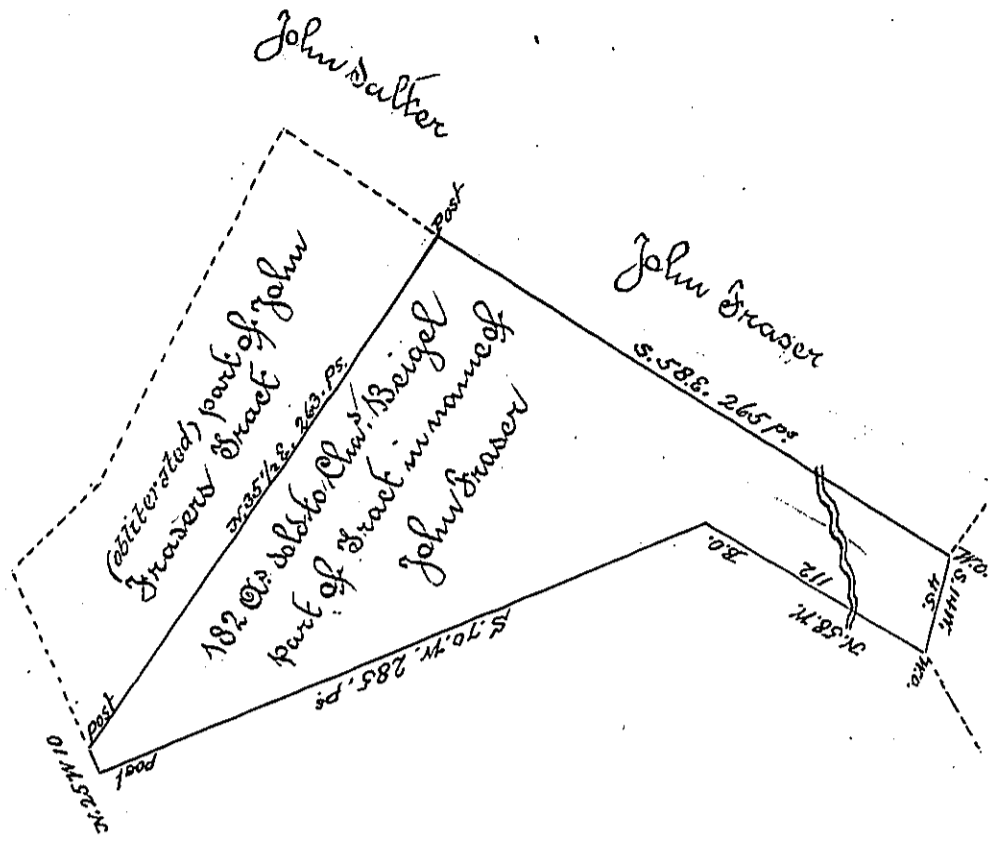 John Salter
Post
John Fraser
S.58.E. 265 ps
(obliterated) part of John
Frasers Tract
N.35 1/2 E. 263. ps.
182 As. sold to Chas. Beigel
part of Tract in name of
John Fraser
S.14W.
45.
W.O.
N.58.W.
112
B.O.
S.70.W. 285. ps
Post
Post
N.25W 10